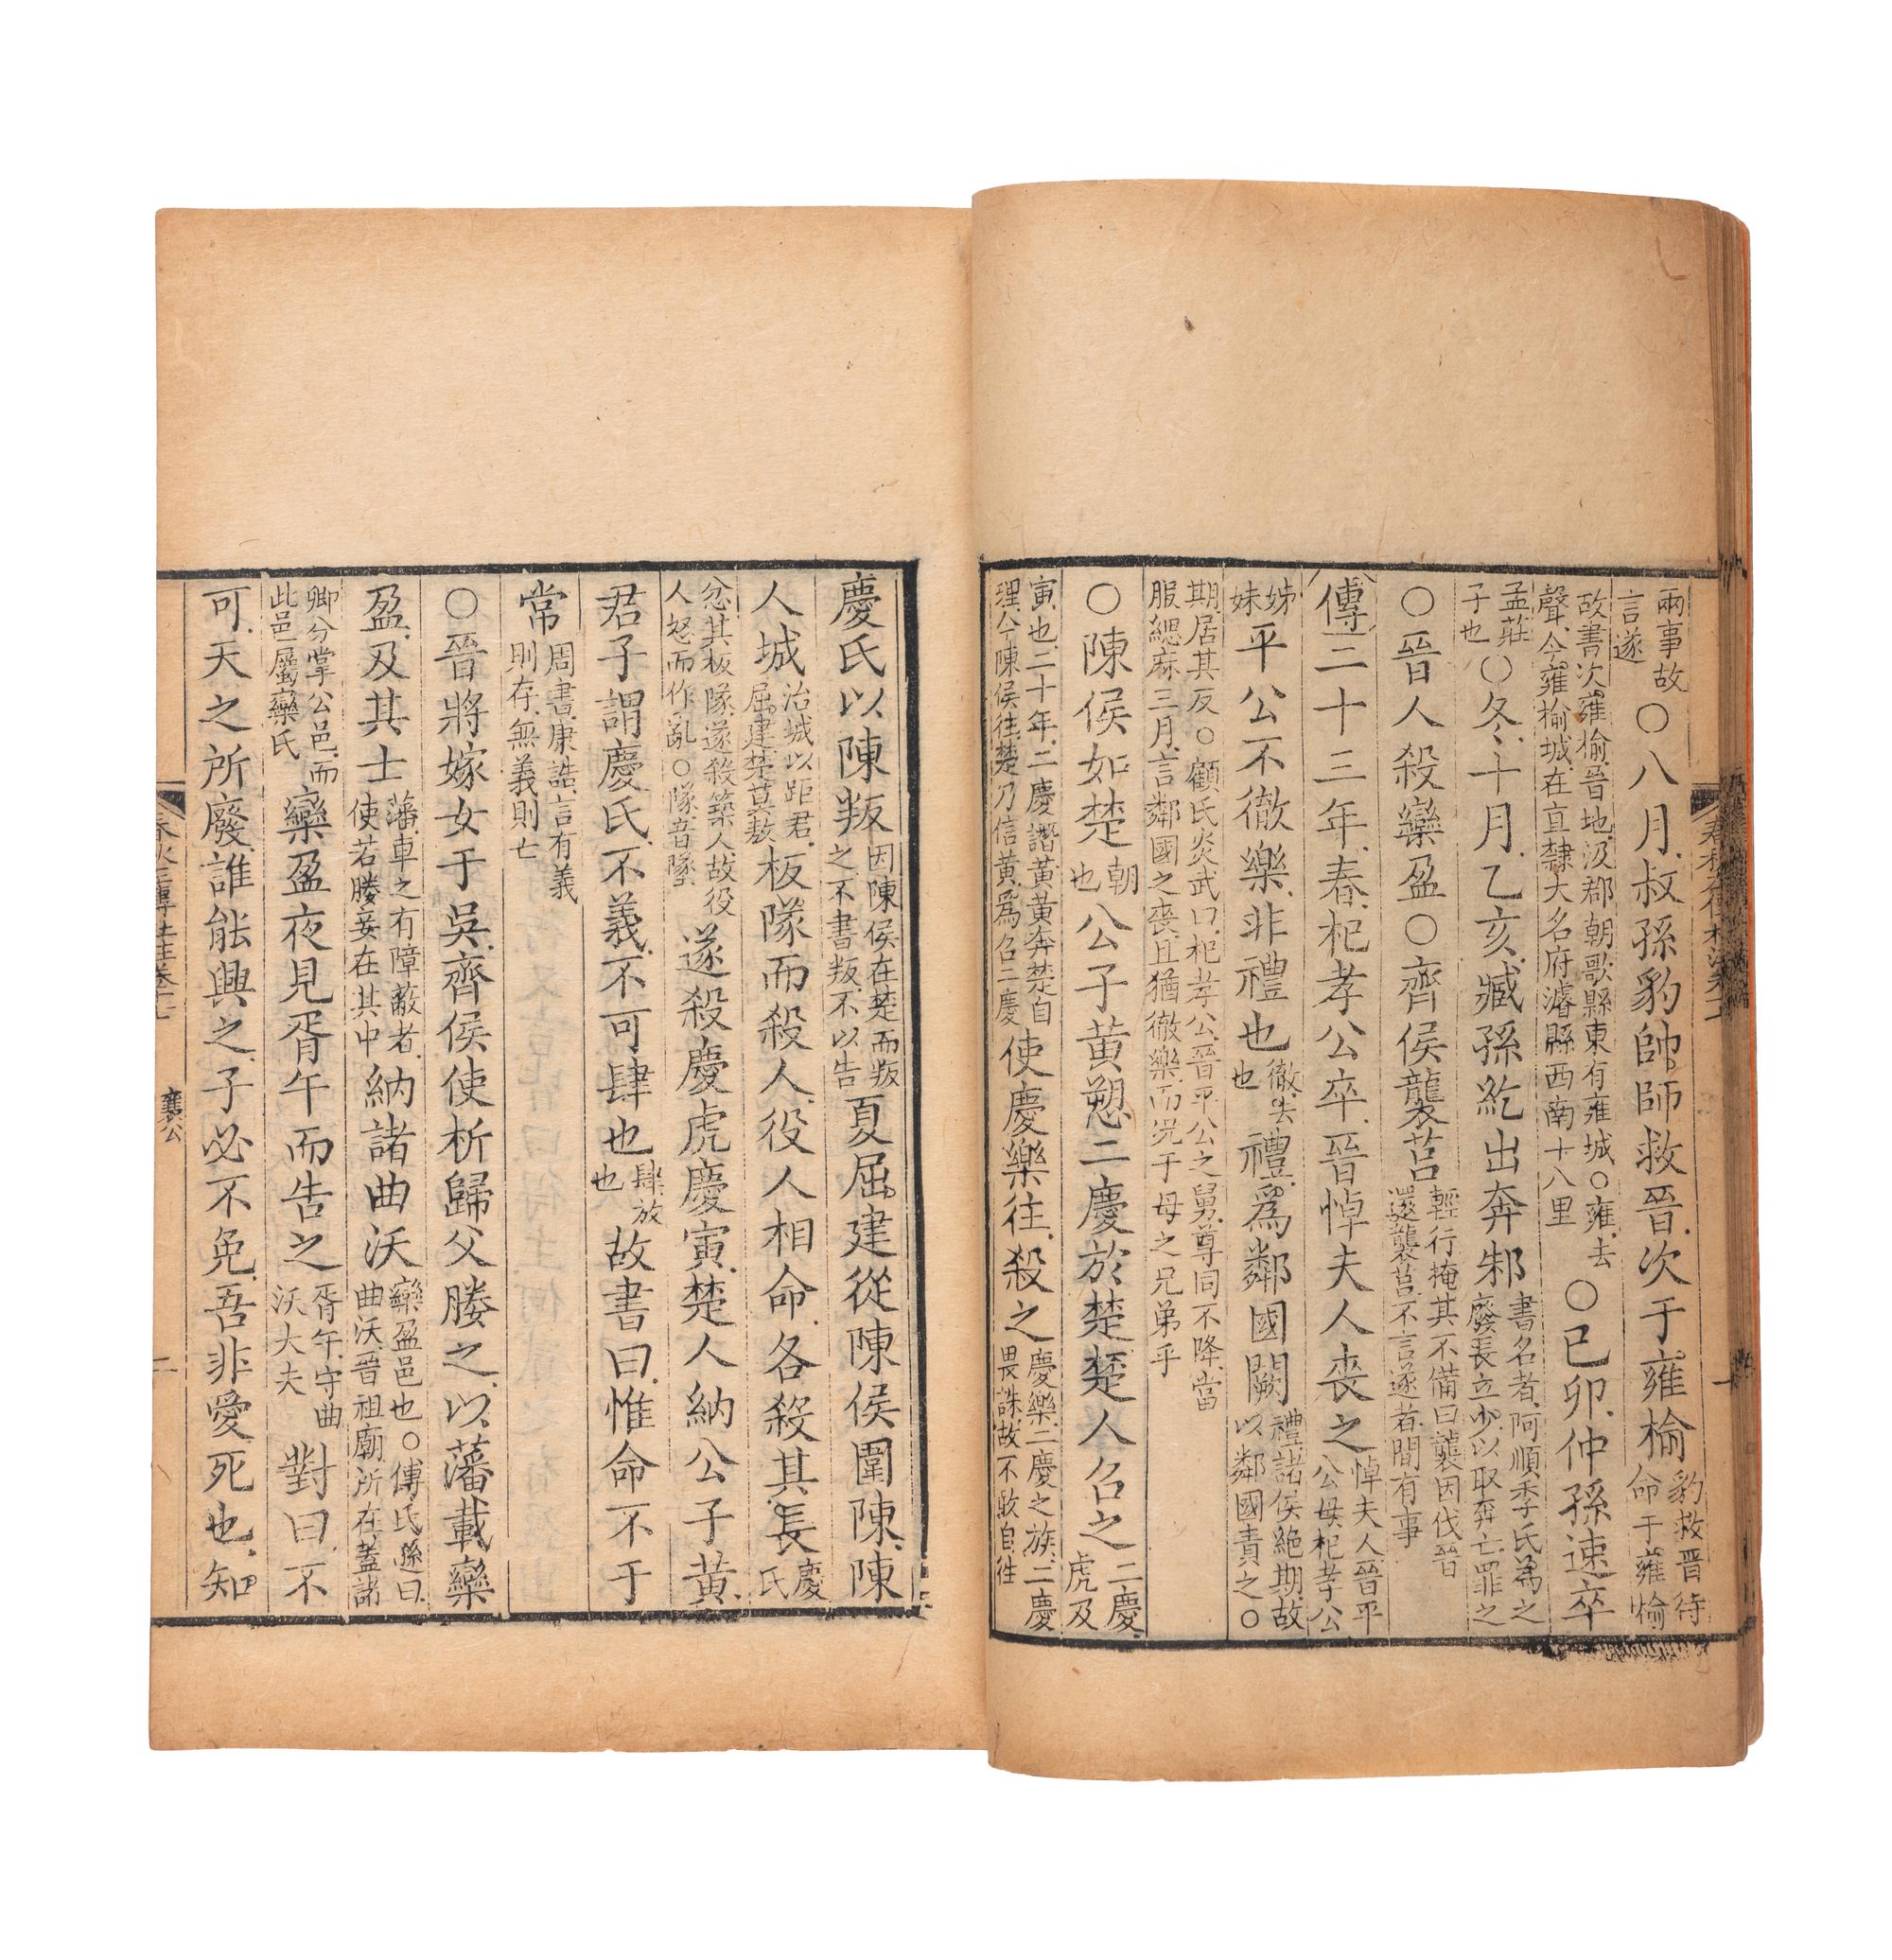 兩事故言遂○八月叔孫豹帥師救晉次于雍榆豹救晉待命于雍榆
故書次雍榆晉地汲郡朝歌縣東有雍城○雍去聲今雍榆城在直隸大名府濬縣西南十八里○己卯仲孫速卒
孟莊子也○冬十月乙亥臧孫紇出奔邾書名者阿順季氏為之廢長立少以取奔亡罪之
○晉人殺欒盈○齊侯襲莒輕行掩其不備曰襲因伐晉還襲莒不言遂者間有事
傳二十三年春杞孝公卒晉悼夫人喪之悼夫人晉平公母杞孝公
姊妹平公不徹樂非禮也徹去也禮為鄰國闕禮諸侯絕期故以鄰國責之○
期居其反○顧氏炎武曰杞孝公晉平公之舅尊同不降當服緦麻三月言鄰國之喪且猶徹樂而況于母之兄弟乎
○陳侯如楚朝也公子黃愬二慶於楚楚人召之二慶虎及
寅也二十年二慶譖黃黃奔楚自理今陳侯往楚乃信黃為召二慶使慶樂往殺之慶樂二慶之族二慶畏誅故不敢自往
慶氏以陳叛因陳侯在楚而叛之不書叛不以告夏屈建從陳侯圍陳陳
人城治城以距君屈建楚莫敖板隊而殺人役人相命各殺其長慶氏
忿其板隊遂殺築人故役人怒而作亂○隊音墜遂殺慶虎慶寅楚人納公子黃
君子謂慶氏不義不可肆也肆放也故書曰惟命不于
常周書康誥言有義則存無義則亡
○晉將嫁女于吳齊侯使析歸父媵之以藩載欒
盈及其士藩車之有障蔽者使若媵妾在其中納諸曲沃欒盈邑也○傅氏遜曰曲沃晉祖廟所在蓋諸
卿分掌公邑而此邑屬欒氏欒盈夜見胥午而告之胥午守曲沃大夫對曰不
可天之所廢誰能興之子必不免吾非愛死也知
襄公
二